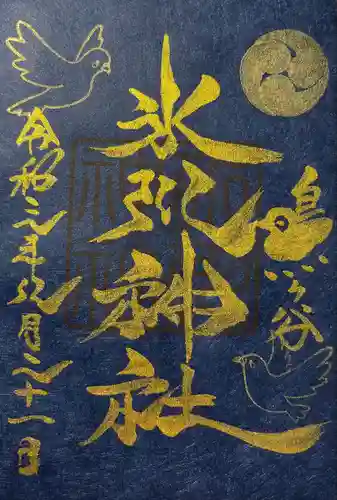 鳩ヶ谷
氷川神社
令和元年九月二十一日